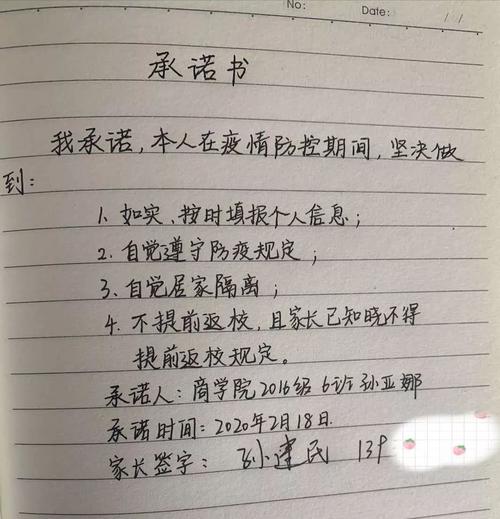 No:
Date: / /
承诺书
我承诺,本人在疫情防控期间,坚决做
到:
1. 如实、按时填报个人信息;
2. 自觉遵守防疫规定;
3. 自觉居家隔离;
4. 不提前返校,且家长已知晓不得
提前返校规定。
承诺人:商学院2016级 6班 孙亚娜
承诺时间:2020年2月18日
家长签字: 孙建民 139